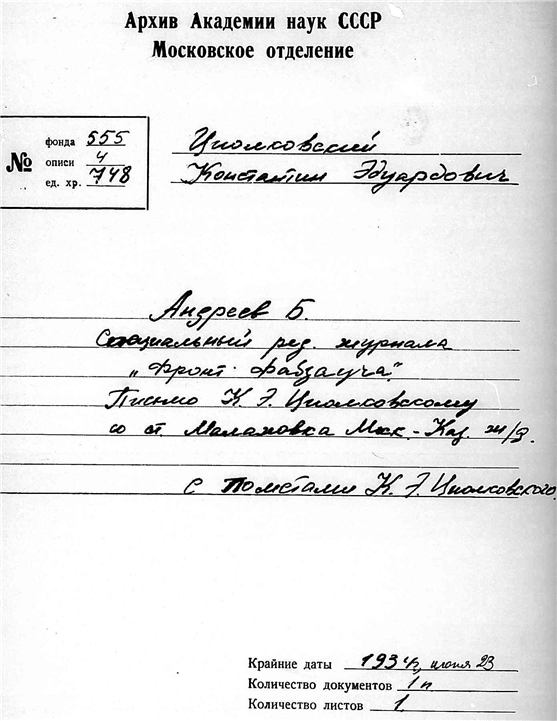 Архив Академии наук СССР
Московское отделение
№
фонда 555
описи 4
ед. хр. 748
Циолковский
Константин Эдуардович
Андреев Б.
Специальный ред. журнала
„Фронт Фабзауча".
Письмо К. Э. Циолковскому
со ст. Малаховка Мск.-Каз. ж/д.
с пометами К. Э. Циолковского.
Крайние даты 1934г, 23
Количество документов 1
Количество листов 1